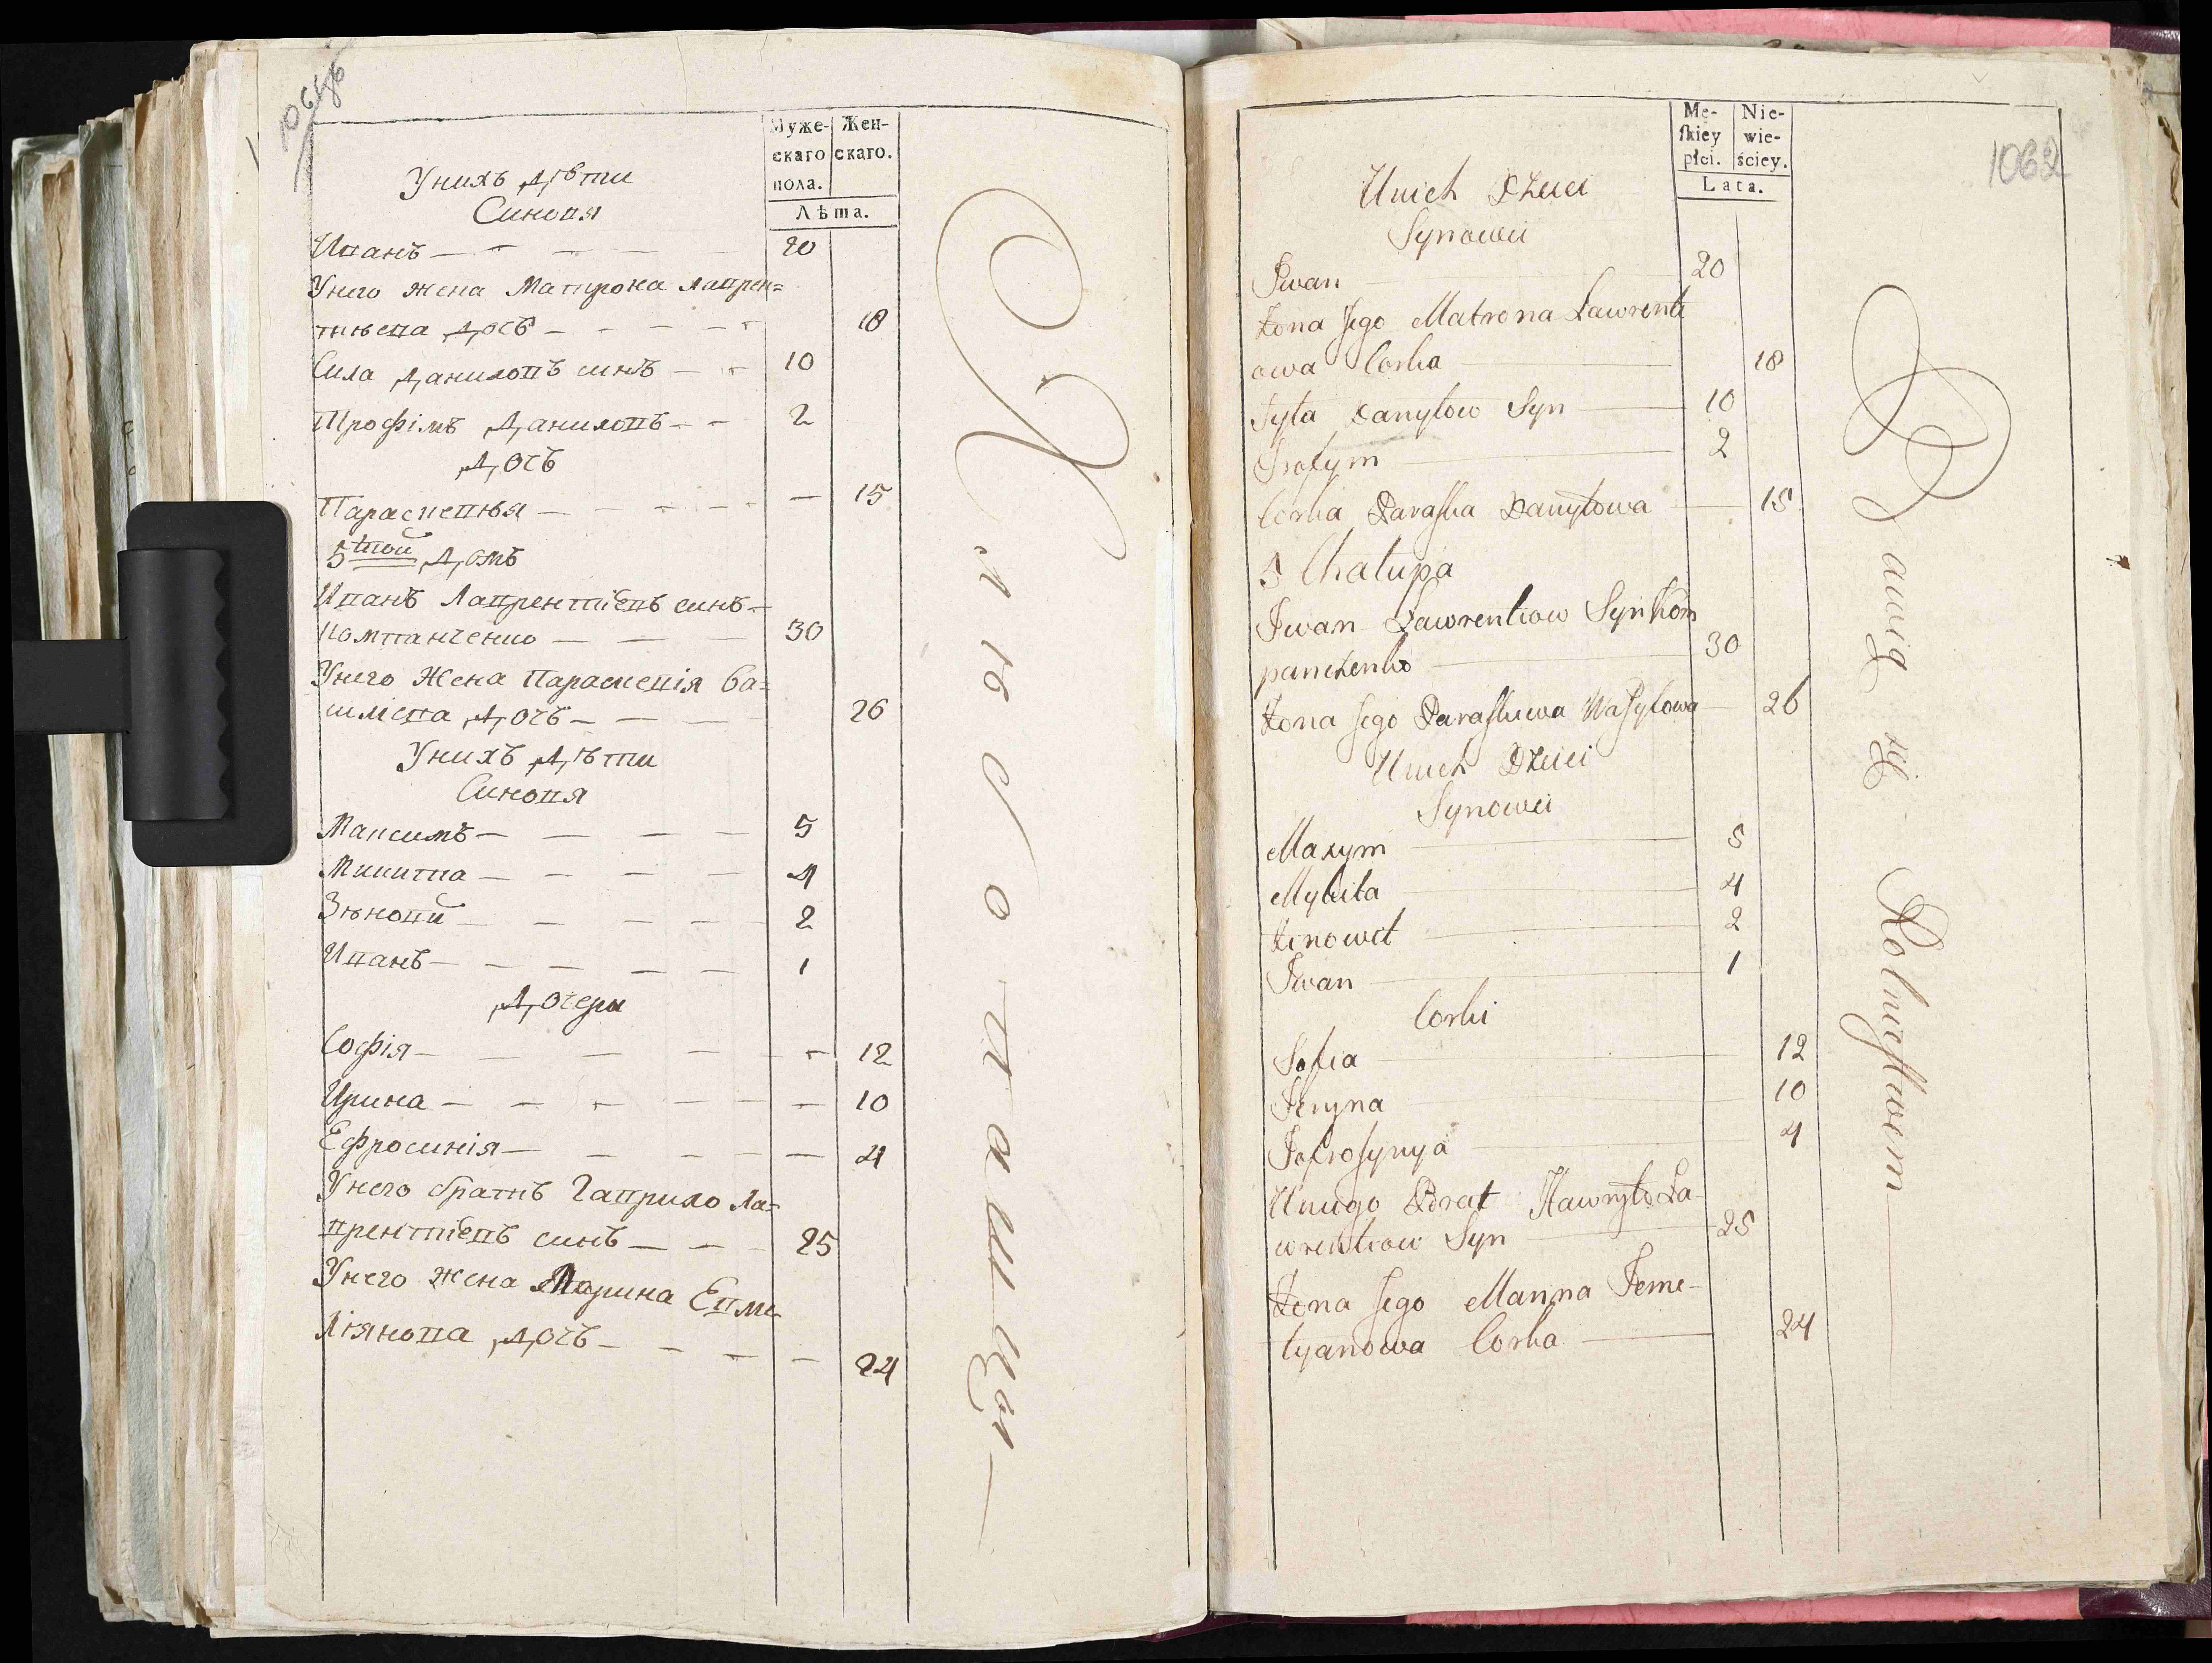 Муже-
скаго
пола.
Жен-
скаго.
Лѣта.
Унихъ дѣти
Синовя
Иванъ — — — — 20
Унего жена Матрона Лаврен=
тиева дочь — — — — 18
Сила Даниловъ синъ — — 10
Трофімъ Даниловъ — — 2
Дочь
Парасневия — — — — — 15
5 той Домъ
Иванъ Лаврентіевъ синъ —
Компанченко — — — 30
Унего Жена Параскевія Ва=
силева дочь — — — 26
Унихъ дѣти
Синовя
Максимъ — — — — 5
Микита — — — — 4
Зѣновій — — — — 2
Иванъ — — — — — 1
Дочери
Софія — — — — — 12
Ирина — — — — — — 10
Ефросинія — — — — — 4
Унего братъ Гаврило Ла=
врентіевъ синъ — — — 25
Унего жена Марина Емме
ліянова дочь — — — — 24
1062
Mę-
ſkiey
płci.
Nie-
wie-
ściey.
Lata.
Unich Dzieci
Synowei
Iwan 20
Zona Jego Matrona Lawrenti
owa Corka 18
Syła Danyłow Syn 10
Trofym 2
Corka Paraſka Danyłowa 15
5 Chałupa
Iwan Lawrentiow Syn Kom
panczenko 30
Zona Jego Paraſkiewa Waſylowa 26
Unich Dzieci
Synowei
Maxym 5
Mykita 4
Zinowit 2
Iwan 1
Corki
Sofia 12
Iryna 10
Jofroſynya 4
Uniego Brat Hawryło La-
wrentiow Syn 25
Zona Jego Marina Jeme-
lyanowa Corka 24
Bawią się Rolnictwem